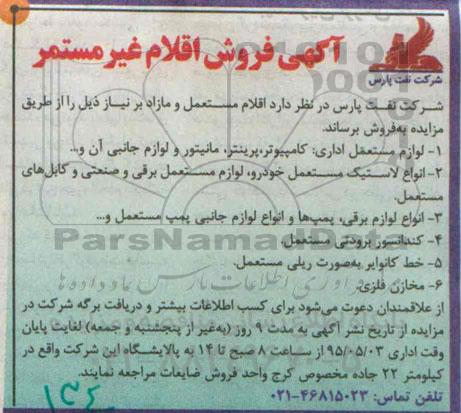 آگهی فروش اقلام غیر مستمر
شرکت نفت پارس
شرکت نفت پارس در نظر دارد اقلام مستعمل و مازاد بر نیاز ذیل را از طریق
مزایده به‌فروش برساند.
۱- لوازم مستعمل اداری: کامپیوتر،پرینتر، مانیتور و لوازم جانبی آن و...
۲-انواع لاستیک مستعمل خودرو، لوازم مستعمل برقی و صنعتی و کابل‌های
مستعمل.
۳- انواع لوازم برقی، پمپ‌ها و انواع لوازم جانبی پمپ مستعمل و...
۴- کندانسور برودتی مستعمل.
ParsNamadData
۵- خط کانوایر به‌صورت ریلی مستعمل.
۶- مخازن فلزی.
از علاقمندان دعوت می‌شود برای کسب اطلاعات بیشتر و دریافت برگه شرکت در
مزایده از تاریخ نشر آگهی به مدت ۹ روز (به‌غیر از پنجشنبه و جمعه) لغایت پایان
وقت اداری ۹۵/۰۵/۰۳ از ساعت ۸ صبح تا ۱۴ به پالایشگاه این شرکت واقع در
کیلومتر ۲۲ جاده مخصوص کرج واحد فروش ضایعات مراجعه نمایند.
تلفن تماس: ۴۶۸۱۵۰۲۳-۰۲۱